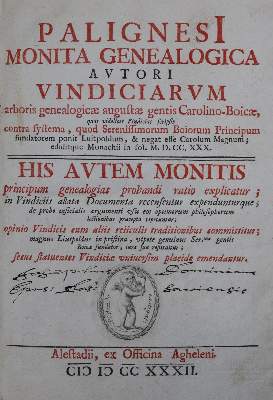 PALIGNESI
MONITA GENEALOGICA
AVTORI
VINDICIARVM
arboris genealogicæ augustæ gentis Carolino-Boicæ,
contra systema, quod Serenissimorum Boiorum Principum
fundatorem ponit Luitpoldum, & negat esse Carolum Magnum;
editique Monachii in fol. M. D. CC. XXX.
HIS AVTEM MONITIS
principum genealogias probandi ratio explicatur;
in Vindiciis allata Documenta recensentur expendunturque;
de probo officialis argumenti usu ex optimarum philosophorum
opinio Vindicis cum aliis reticulis traditionibus committitur;
magnus Luitpoldus in pristina, utpote genuinus Ser.mae gentis
Boicæ fundator, iura sua reponitur;
secus statuentes Vindiciæ universim placide emendantur.
Alestadii, ex Officina Agheleni.
CIↃ IↃ CC XXXII.